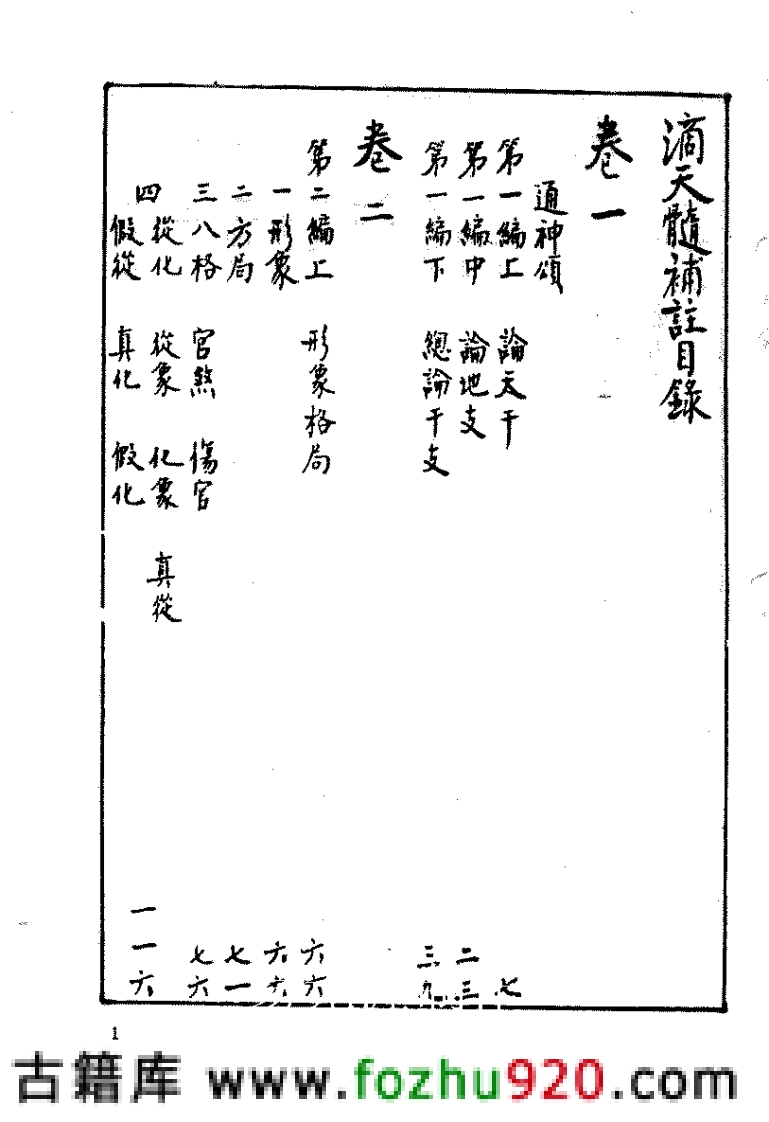 滴天髓補註目錄
卷一
通神頌
第一編上 論天干 七
第一編中 論地支 二三
第一編下 總論干支 三九
卷二
第二編上 形象格局 六六
一形象 六六
二方局 七一
三八格 官煞 傷官 七六
四從化 從象 化象 真從
假從 真化 假化 一一六
1
古籍库 www.fozhu920.com